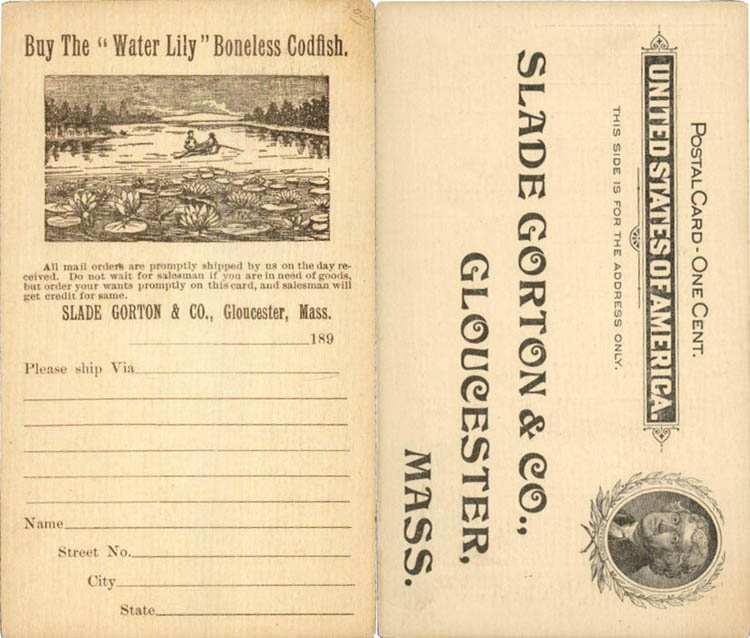 Buy The "Water Lily" Boneless Codfish.
All mail orders are promptly shipped by us on the day re-
ceived. Do not wait for salesman if you are in need of goods,
but order your wants promptly on this card, and salesman will
get credit for same.
SLADE GORTON & CO., Gloucester, Mass.
189
Please ship Via
Name
Street No.
City
State
POSTAL CARD - ONE CENT.
UNITED STATES OF AMERICA.
THIS SIDE IS FOR THE ADDRESS ONLY.
SLADE GORTON & CO.,
GLOUCESTER,
MASS.